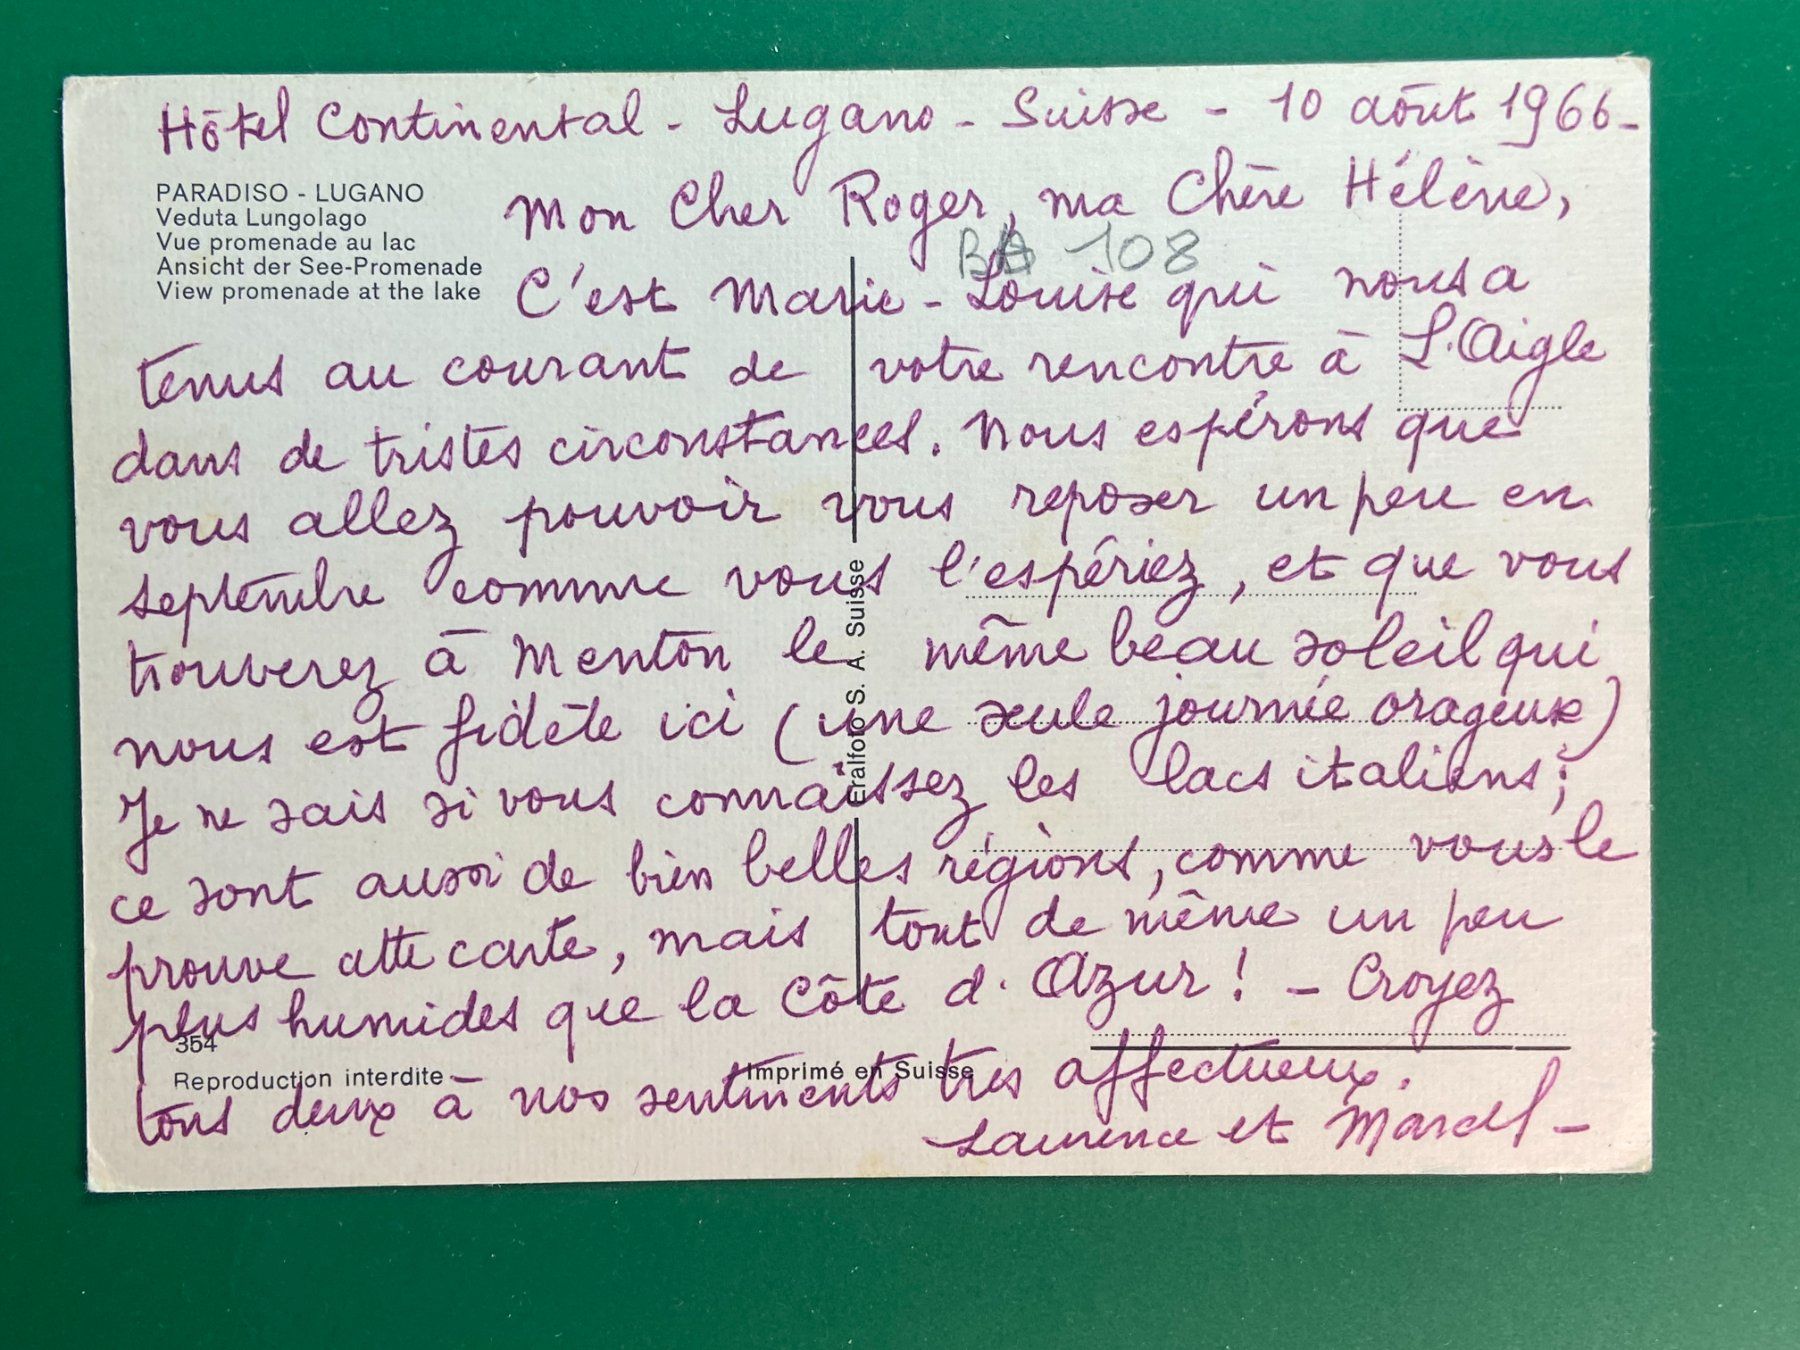 Hôtel Continental - Lugano - Suisse - 10 août 1966 -
PARADISO - LUGANO
Veduta Lungolago
Vue promenade au lac
Ansicht der See-Promenade
View promenade at the lake
Mon Cher Roger, ma Chère Hélène,
108
C'est Marie-Louise qui nous a
tenus au courant de votre rencontre à L'Aigle
dans de tristes circonstances. Nous espérons que
vous allez pouvoir vous reposer un peu en
septembre comme vous l'espériez, et que vous
trouverez à Menton le même beau soleil qui
nous est fidèle ici (une seule journée orageuse)
Je ne sais si vous connaissez les lacs italiens;
ce sont aussi de bien belles régions, comme vous le
prouve cette carte, mais tout de même un peu
plus humides que la Côte d'Azur! - Croyez
tous deux à nos sentiments très affectueux.
Laurence et Marcel -
354
Reproduction interdite
Imprimé en Suisse
Eralfoto S. A. Suisse